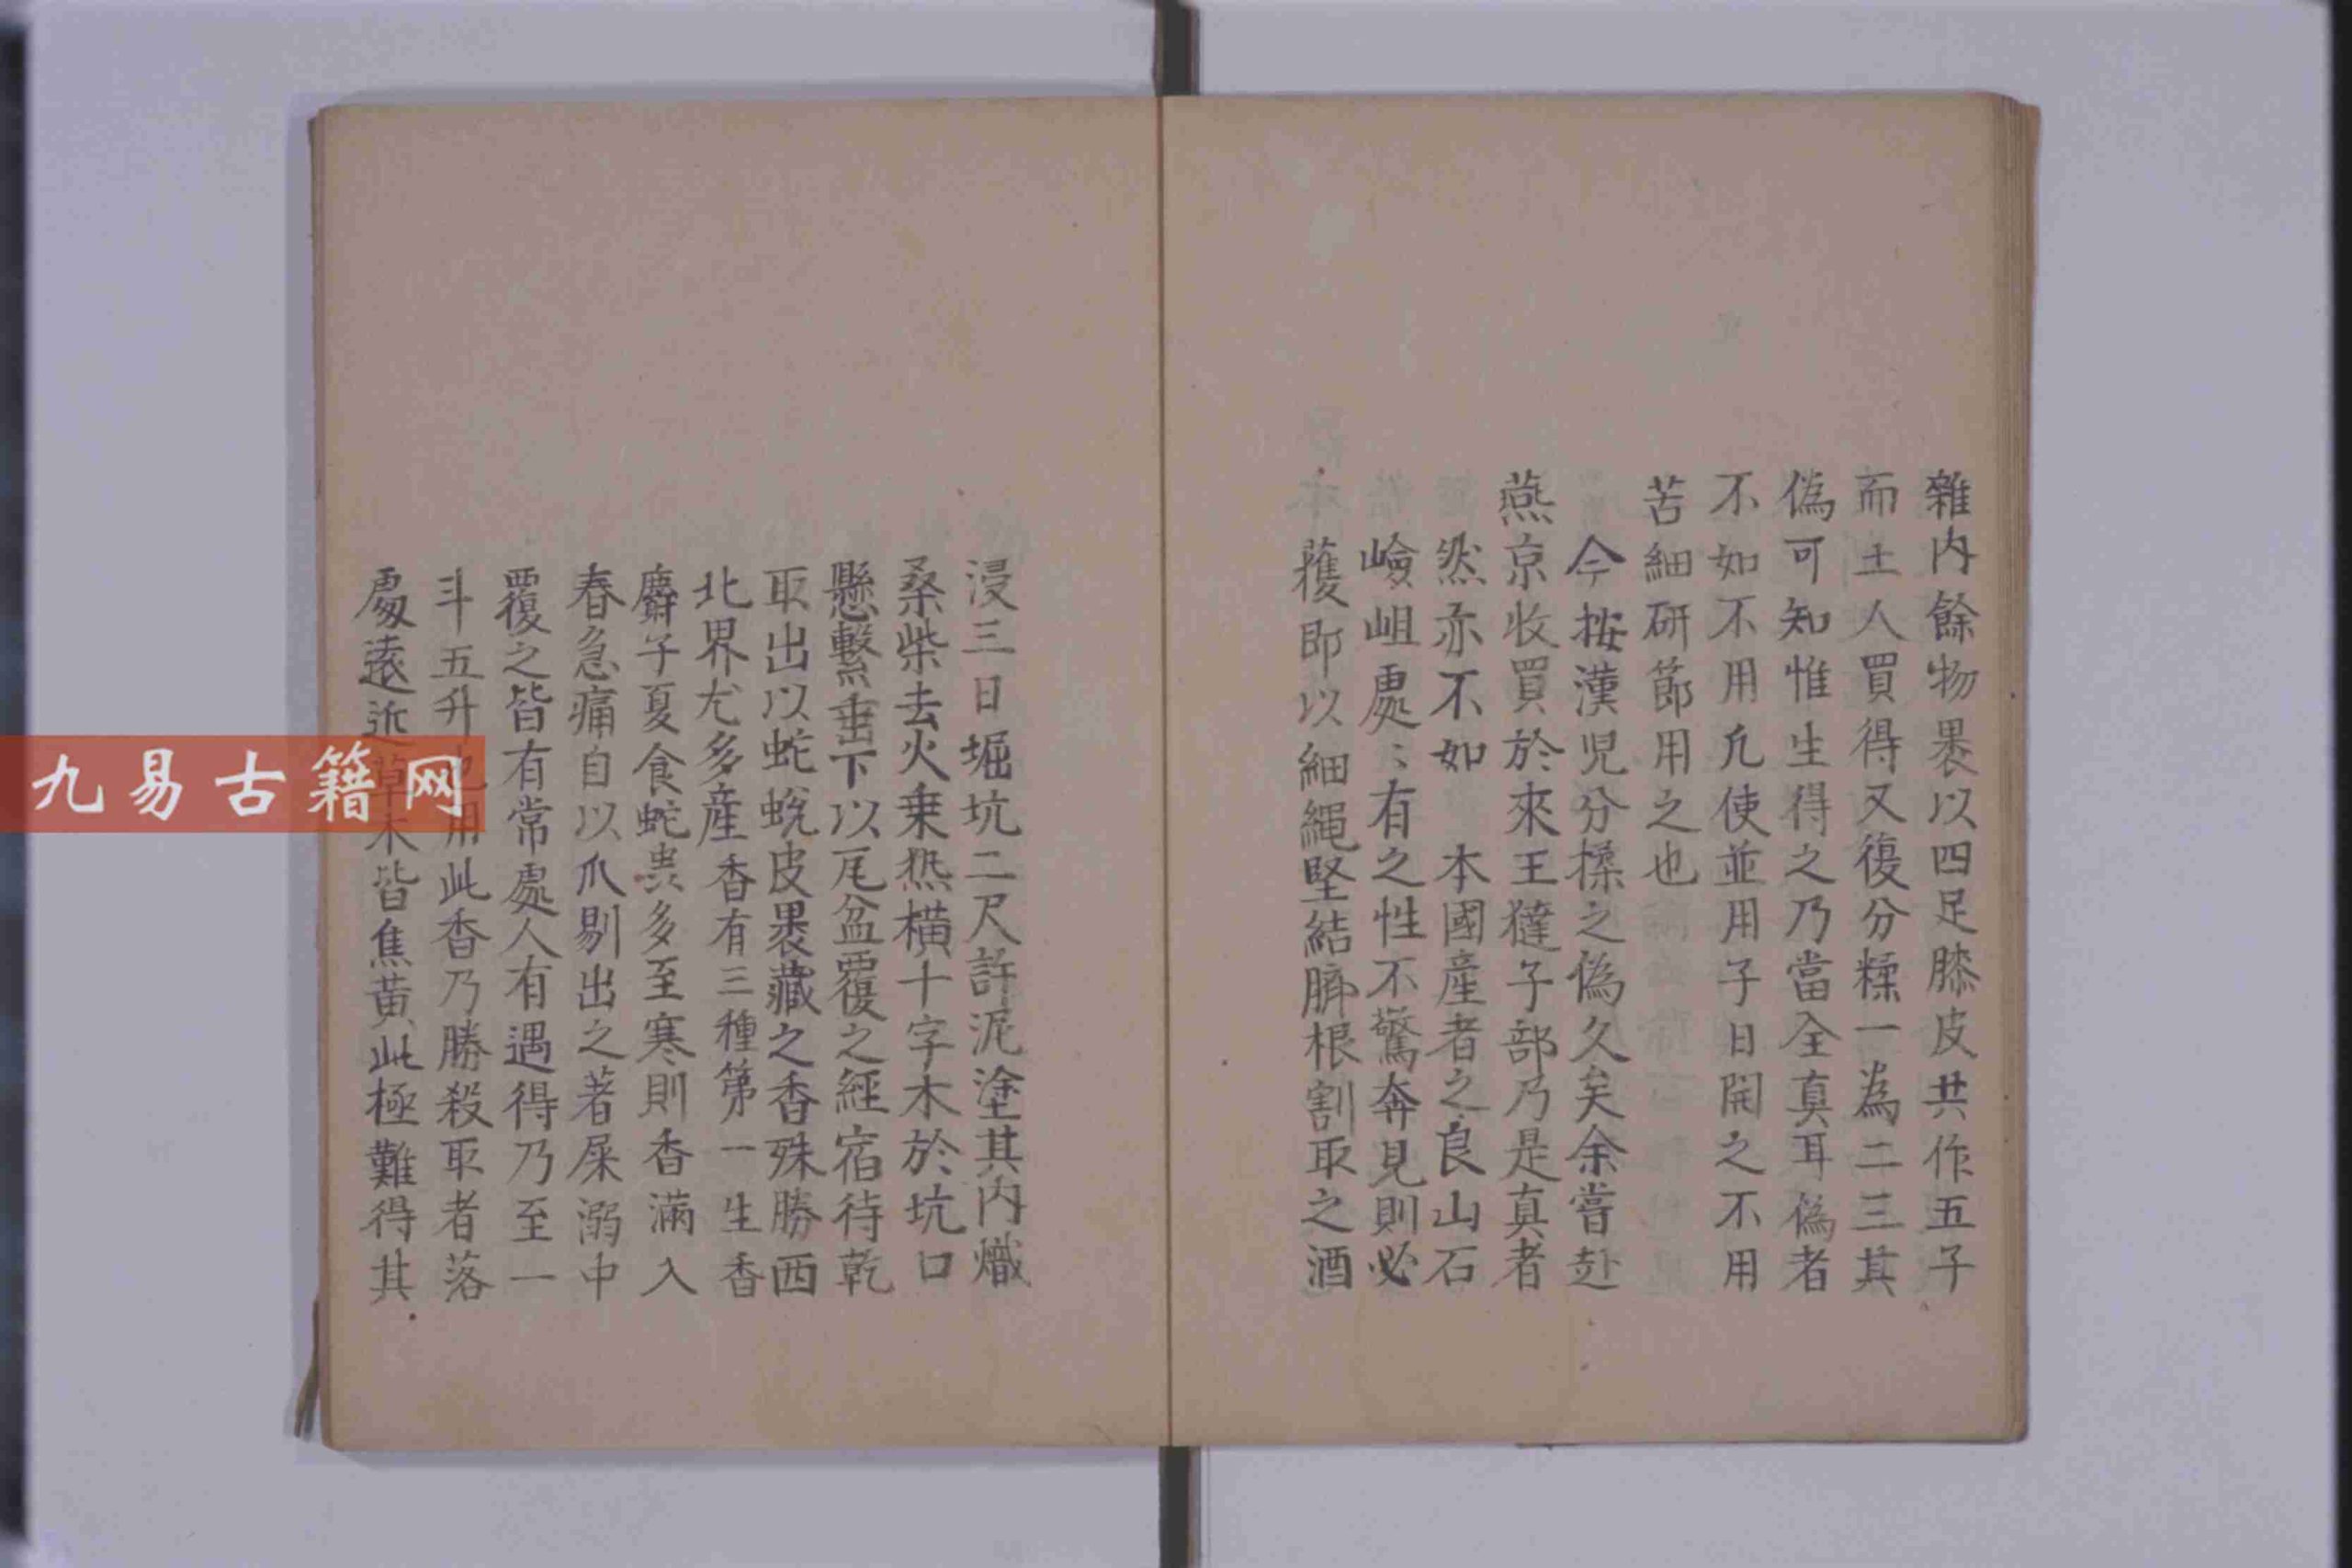 雜内餘物褁以四足膝皮共作五子
而土人買得又復分糅一為二三其
偽可知惟生得之乃當全真耳偽者
不如不用凢使並用子日開之不用
苦細研篩用之也
今按漢児分揉之偽久矣余嘗赴
燕京收買於來王㺚子部乃是真者
然亦不如 本國産者之良山石
嶮岨處〻有之性不驚奔見則必
蒦即以細繩堅結臍根割取之酒
浸三日堀坑二尺許泥塗其内熾
桑柴去火乗热橫十字木於坑口
懸繫垂下以瓦盆覆之經宿待乾
取出以蛇蛻皮褁藏之香殊勝西
北界尤多産香有三種第一生香
麝子夏食蛇虫多至寒則香滿入
春急痛自以爪剔出之著屎溺中
覆之皆有常處人有遇得乃至一
斗五升也用此香乃勝殺取者落
處遠近草木皆焦黃此極難得其
九易古籍网